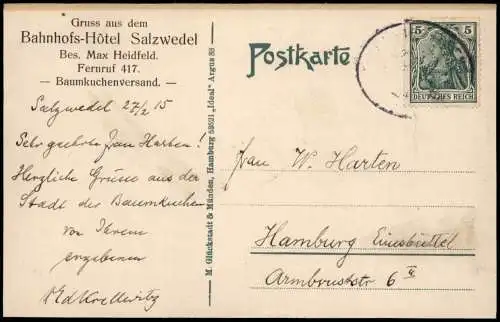 Gruss aus dem
Bahnhofs-Hôtel Salzwedel
Bes. Max Heidfeld.
Fernruf 417.
— Baumkuchenversand. —
Salzwedel 27/2 15
Sehr geehrte Frau Harten!
Herzliche Grüsse aus der
Stadt der Baumkuchen
von Ihrem
ergebenen
M. Glückstadt & Münden, Hamburg 52621 „Ideal" Argus 38
Postkarte
5 5
DEUTSCHES REICH
Frau W. Harten
Hamburg Eimsbüttel
Armbruststr 6